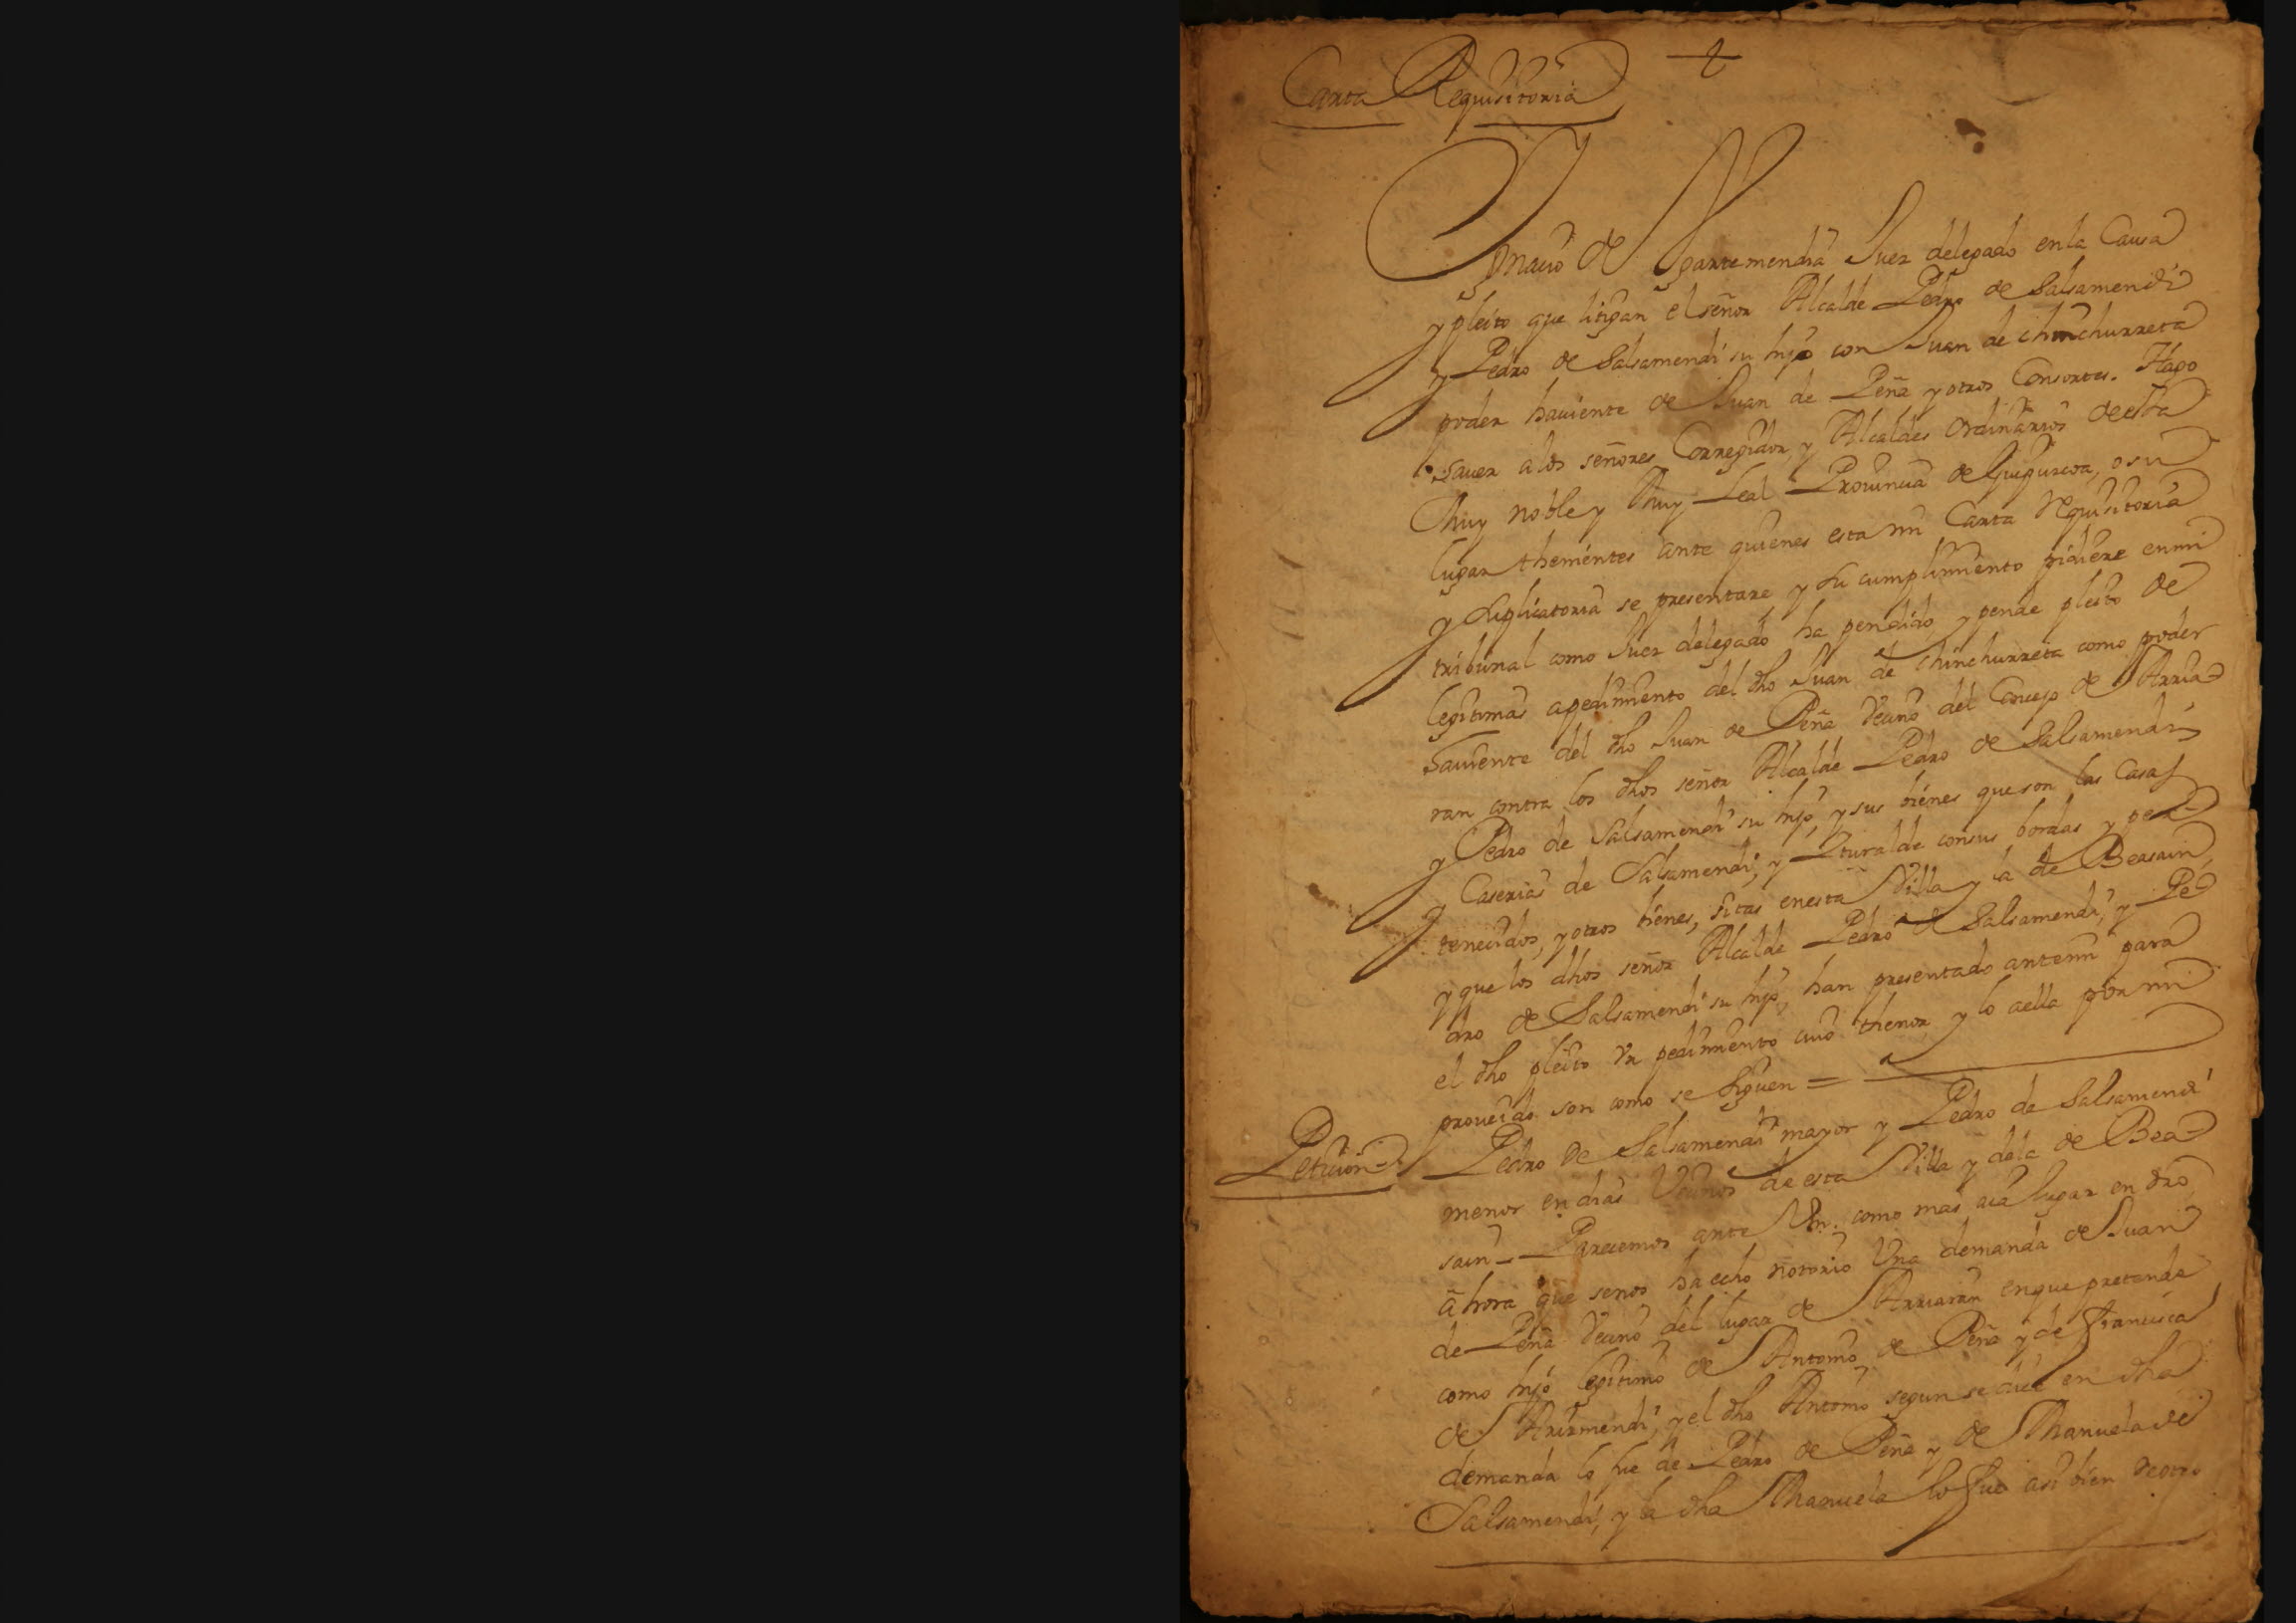 Carta Requisitoria
Ygnacio de Yparramendia Juez delegado en la Causa
y pleito que litigan el señor Alcalde Pedro de Salsamendi
y Pedro de Salsamendi su hijo con Juan de chinchurreta
poder haviente de Juan de Peña y otros Consortes. Hago
saver a los señores Corregidor, y Alcaldes Ordinarios de esta
Muy noble y Muy Leal Provincia de Guipuzcoa, o su
lugar thenientes ante quienes esta mi Carta Requisitoria
y Suplicatoria se presentare y su cumplimiento pidiere en mi
tribunal como Juez delegado ha pendido, y pende pleito de
legitimas a pedimiento del dho Juan de chinchurreta como poder
haviente del dho Juan de Peña Vecino del Concejo de Arria-
ran contra los dhos señor Alcalde Pedro de Salsamendi
y Pedro de Salsamendi su hijo, y sus bienes que son las Casas
y Caserias de Salsamendi, y Yturalde con sus bordas y per-
tenecidos, y otros bienes, sitas en esta Villa y la de Beasain,
y que los dhos señor Alcalde Pedro de Salsamendi, y Pe-
dro de Salsamendi su hijo, han presentado ante mi para
el dho pleito Un pedimiento cuio thenor y lo a ella por mi
proveido son como se siguen =
Peticion - Pedro de Salsamendi mayor y Pedro de Salsamendi
menor en dias Vecinos de esta Villa y de la de Bea-
sain - Parecemos ante Vm. como mas aia lugar en dro,
ahora que se nos ha echo notorio Una demanda de Juan
de Peña Vecino del lugar de Arriaran en que pretende
como hijo legitimo de Antonio de Peña y de Francisca
de Arizmendi, y el dho Antonio segun se dice en dha
demanda lo fue de Pedro de Peña y de Manuela de
Salsamendi, y la dha Manuela lo fue asi bien de otro